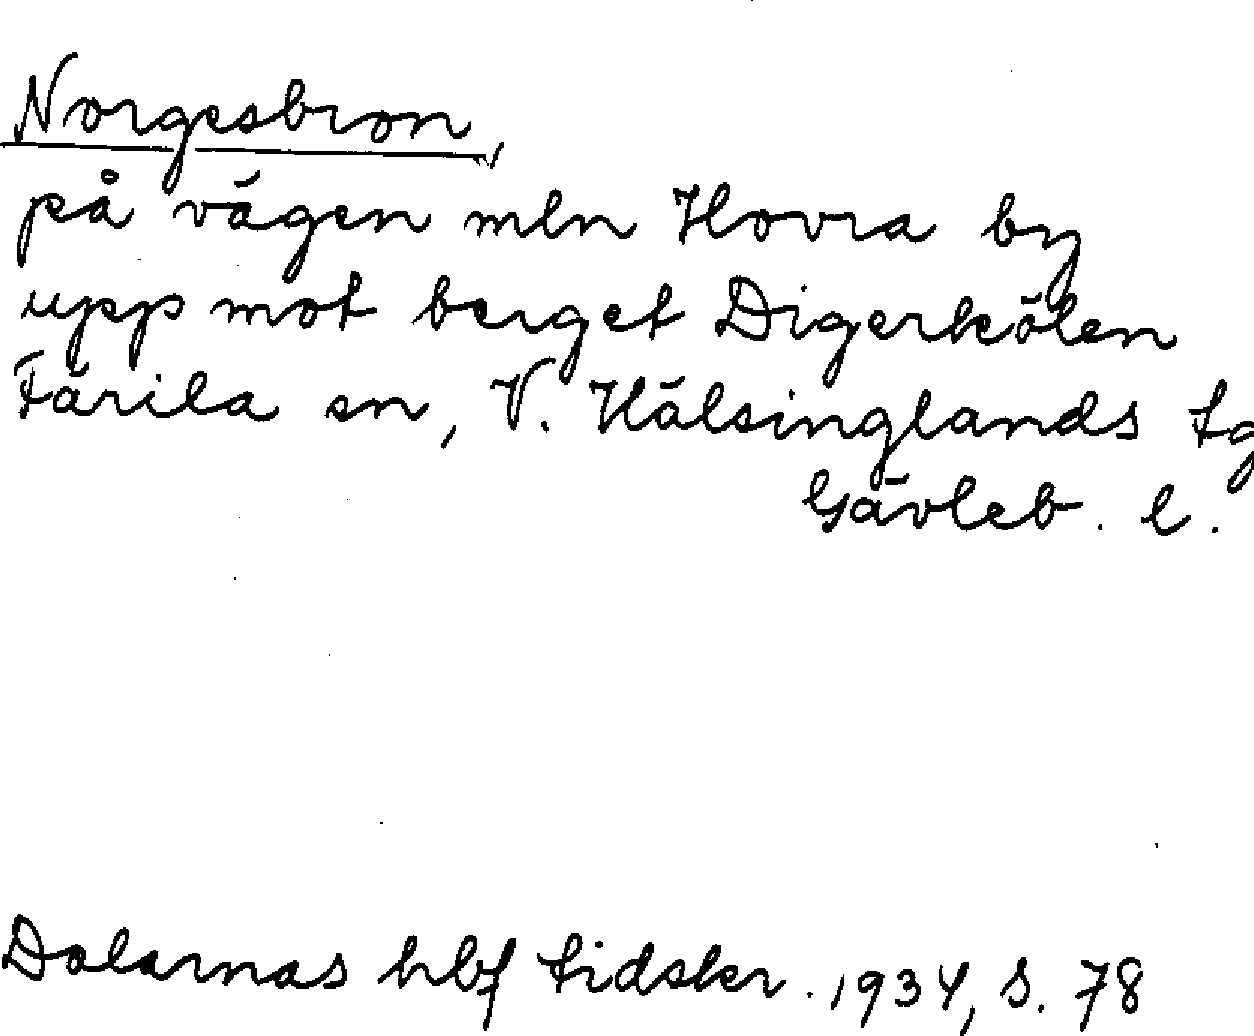 Norgesbron
på vägen mln Hovra by
upp mot berget Digerkölen
Färila sn, V. Hälsinglands tg
Gävleb. l.
Dalarnas hbf tidskr. 1934, s. 78